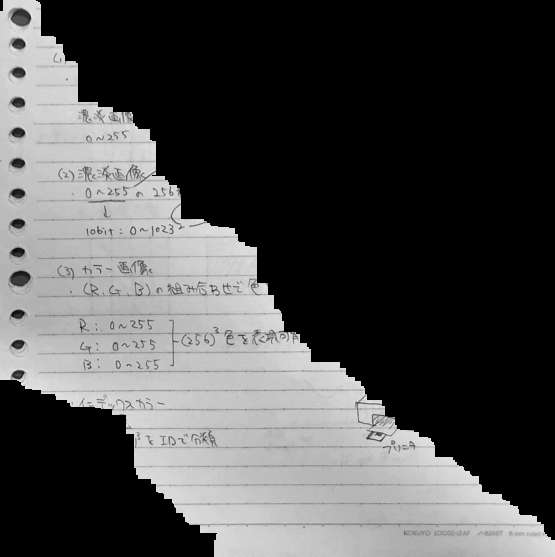 (1
濃淡画像
0~255
(2) 濃淡画像
・0~255の256
↓
10bit: 0~1023
(3) カラー画像
・(R, G, B)の組み合わせで色
R: 0~255
G: 0~255
B: 0~255
(256)³色を表現可
・インデックスカラー
をIDで分類
プリンタ
KOKUYO LOOSE-LEAF